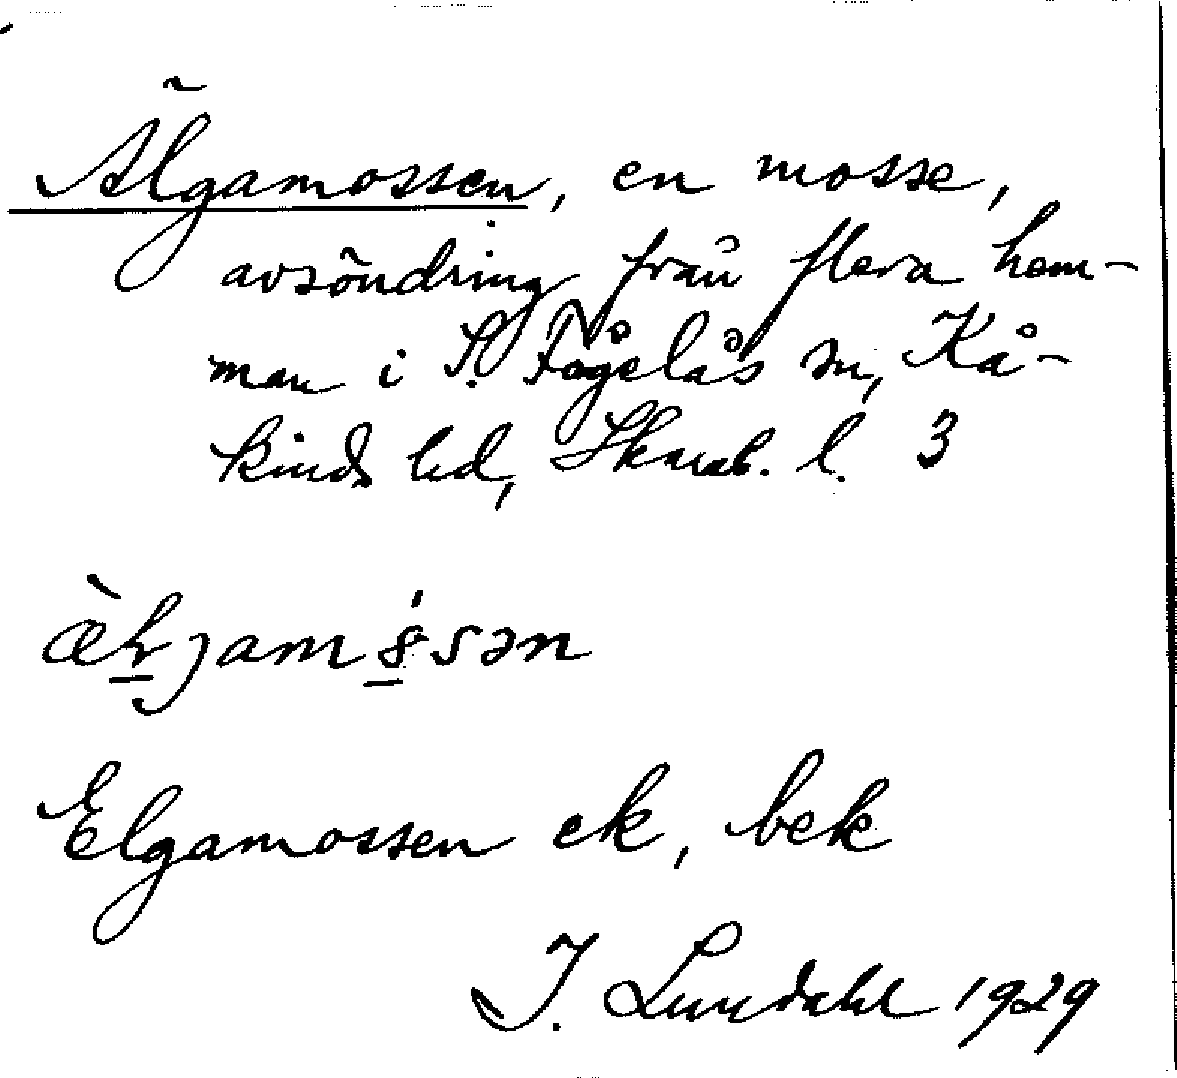 Älgamossen, en mosse,
avsöndring från flera hem-
man i S. Fågelås sn, Kå-
kinds hd, Skarab. l. 3
Elgamossen ek, bek
I. Lundahl 1929